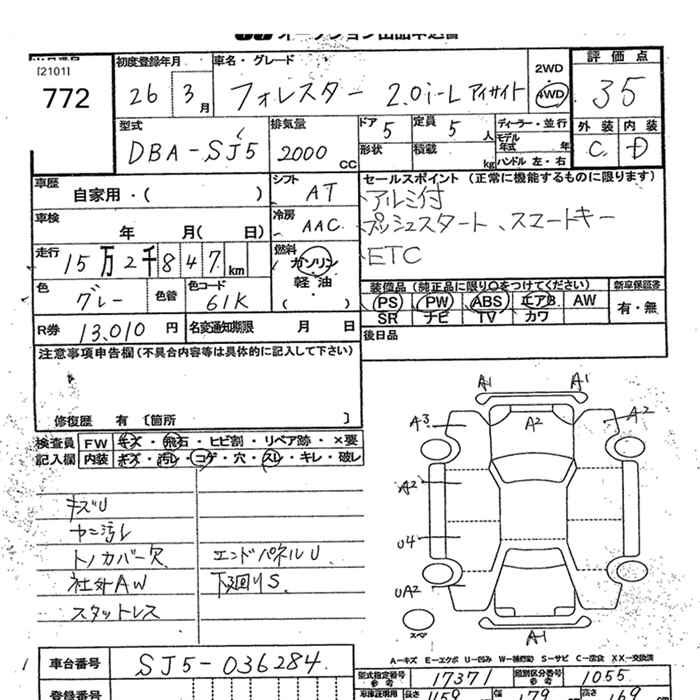 オークション出品申込書
[2101]
772
初度登録年月 26 3月
車名・グレード フォレスター 2.0i-L アイサイト
2WD 4WD
評価点 35
型式 DBA-SJ5
排気量 2000 CC
ドア 5 形状
定員 5 人 積載 kg
ディーラー・並行
モデル年式 年
ハンドル 左・右
外装 内装
C D
車歴 自家用・( )
シフト AT
セールスポイント (正常に機能するものに限ります)
アルミ付
プッシュスタート、スマートキー
ETC
車検 年 月(日)
冷房 AAC
走行 15万2千847 km
燃料 ガソリン 軽油 ( )
色 グレー 色替
色コード 61K
装備品 (純正品に限り○をつけてください)
新車保証書
PS PW ABS エアB AW
有・無
SR ナビ TV カワ
R券 13,010 円
名変通知期限 月 日
後日品
注意事項申告欄 (不具合内容等は具体的に記入して下さい)
修復歴 有 〔箇所 〕
検査員記入欄
FW キズ・飛石・ヒビ割・リペア跡・×要
内装 キズ・汚レ・コゲ・穴・スレ・キレ・破レ
キズU
ヤニ汚レ
トノカバー欠 エンドパネルU
社外AW 下廻りS
スタットレス
A1 A1
A3 A2 A2
A2
U4
UA2
スペア
A1
A=キズ E=エクボ U=凹み W=補修跡 S=サビ C=腐食 XX=交換済
車台番号 SJ5-036284
型式指定番号 参考 17371
類別区分番号 参考 1055
登録番号
車庫証明用 参考 長さ 459 幅 179 高さ 169